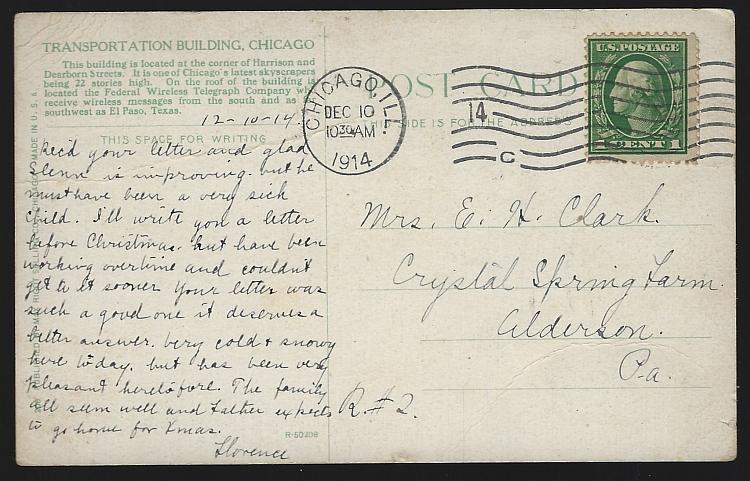 TRANSPORTATION BUILDING, CHICAGO
This building is located at the corner of Harrison and
Dearborn Streets. It is one of Chicago's latest skyscrapers
being 22 stories high. On the roof of the building is
located the Federal Wireless Telegraph Company wh
receive wireless messages from the south and as
southwest as El Paso, Texas.
12-10-14.
THIS SPACE FOR WRITING
Rec'd your letter and glad
Glenn is improving. but he
must have been a very sick
child. I'll write you a letter
before Christmas. but have been
working overtime and couldn't
get to it sooner. Your letter was
such a good one it deserves a
better answer. Very cold & snowy
here today. but has been very
pleasant heretofore. The family
all seem well and Father expects
to go home for Xmas.
Florence
R-50208
MADE IN U.S.A.
POST CARD
THIS SIDE IS FOR THE ADDRESS
CHICAGO, ILL.
DEC 10
1030 AM
1914
14
C
U.S. POSTAGE
1 CENT 1
Mrs. E. H. Clark.
Crystal Spring Farm.
Alderson.
Pa.
R#2.